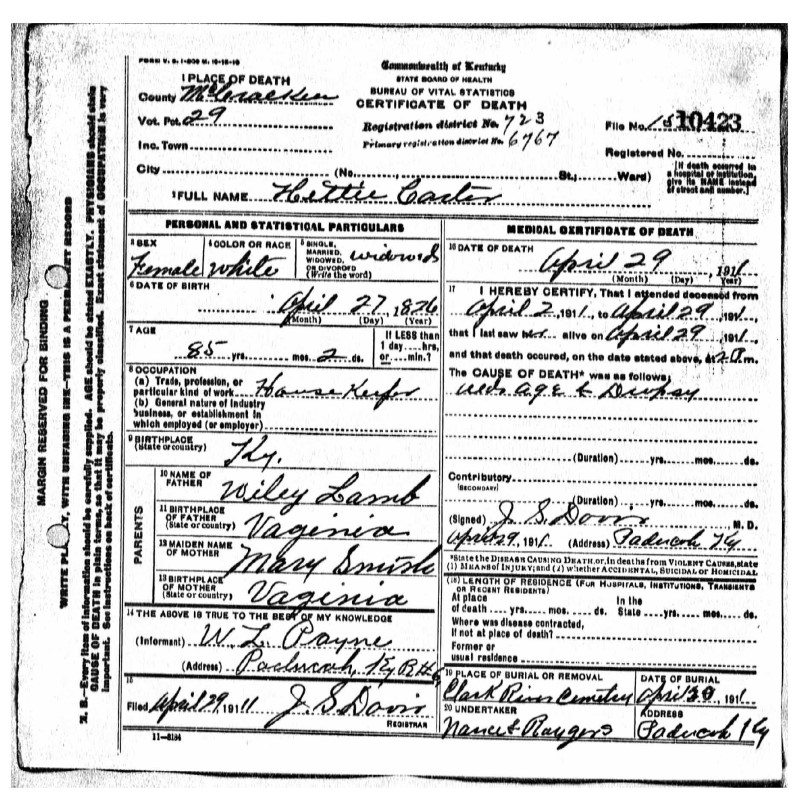 FORM V. S. 1-50M M. 10-15-10
Commonwealth of Kentucky
STATE BOARD OF HEALTH
BUREAU OF VITAL STATISTICS
CERTIFICATE OF DEATH
1 PLACE OF DEATH
County McCracken
Vot. Pct. 29
Inc. Town
City
(No. St.; Ward)
Registration district No. 723
Primary registration district No. 6767
File No. 10423
Registered No.
[If death occurred in a hospital or institution, give its NAME instead of street and number.]
2 FULL NAME Hettie Carter
PERSONAL AND STATISTICAL PARTICULARS
3 SEX Female
4 COLOR OR RACE White
5 SINGLE, MARRIED, WIDOWED, OR DIVORCED (Write the word) widowed
6 DATE OF BIRTH April 27, 1826
(Month) (Day) (Year)
7 AGE 85 yrs. mos. 2 ds.
If LESS than 1 day hrs. or min.?
8 OCCUPATION
(a) Trade, profession, or particular kind of work House Keeper
(b) General nature of industry business, or establishment in which employed (or employer)
9 BIRTHPLACE (State or country) Ky.
PARENTS
10 NAME OF FATHER Wiley Lamb
11 BIRTHPLACE OF FATHER (State or country) Vaginia
12 MAIDEN NAME OF MOTHER Mary Smish
13 BIRTHPLACE OF MOTHER (State or country) Vaginia
14 THE ABOVE IS TRUE TO THE BEST OF MY KNOWLEDGE
(Informant) W. L. Payne
(Address) Paducah Ky R#6
15
Filed April 29 1911 J. S. Davis
REGISTRAR
11-8184
MEDICAL CERTIFICATE OF DEATH
16 DATE OF DEATH April 29, 1911
(Month) (Day) (Year)
17 I HEREBY CERTIFY, That I attended deceased from
April 2 1911, to April 29 1911,
that I last saw her alive on April 29 1911
and that death occured, on the date stated above, at m.
The CAUSE OF DEATH* was as follows;
age & Dropsy
(Duration) yrs. mos. ds.
Contributory
(SECONDARY)
(Duration) yrs. mos. ds.
(Signed) J. S. Davis M. D.
April 29, 1911. (Address) Paducah Ky
*State the DISEASE CAUSING DEATH, or, in deaths from VIOLENT CAUSES, state
(1) MEANS of INJURY; and (2) whether ACCIDENTAL, SUICIDAL or HOMICIDAL
(18) LENGTH OF RESIDENCE (FOR HOSPITALS, INSTITUTIONS, TRANSIENTS OR RECENT RESIDENTS)
At place of death yrs. mos. ds. In the State yrs. mos. ds.
Where was disease contracted, If not at place of death?
Former or usual residence
19 PLACE OF BURIAL OR REMOVAL Clark River Cemetery
DATE OF BURIAL April 30, 1911
20 UNDERTAKER Nance & Rougers
ADDRESS Paducah Ky
MARGIN RESERVED FOR BINDING
WRITE PLAINLY, WITH UNFADING INK—THIS IS A PERMANENT RECORD
N. B.—Every item of information should be carefully supplied. AGE should be stated EXACTLY. PHYSICIANS should state
CAUSE OF DEATH in plain terms, so that it may be properly classified. Exact statement of OCCUPATION is very
important. See instructions on back of certificate.